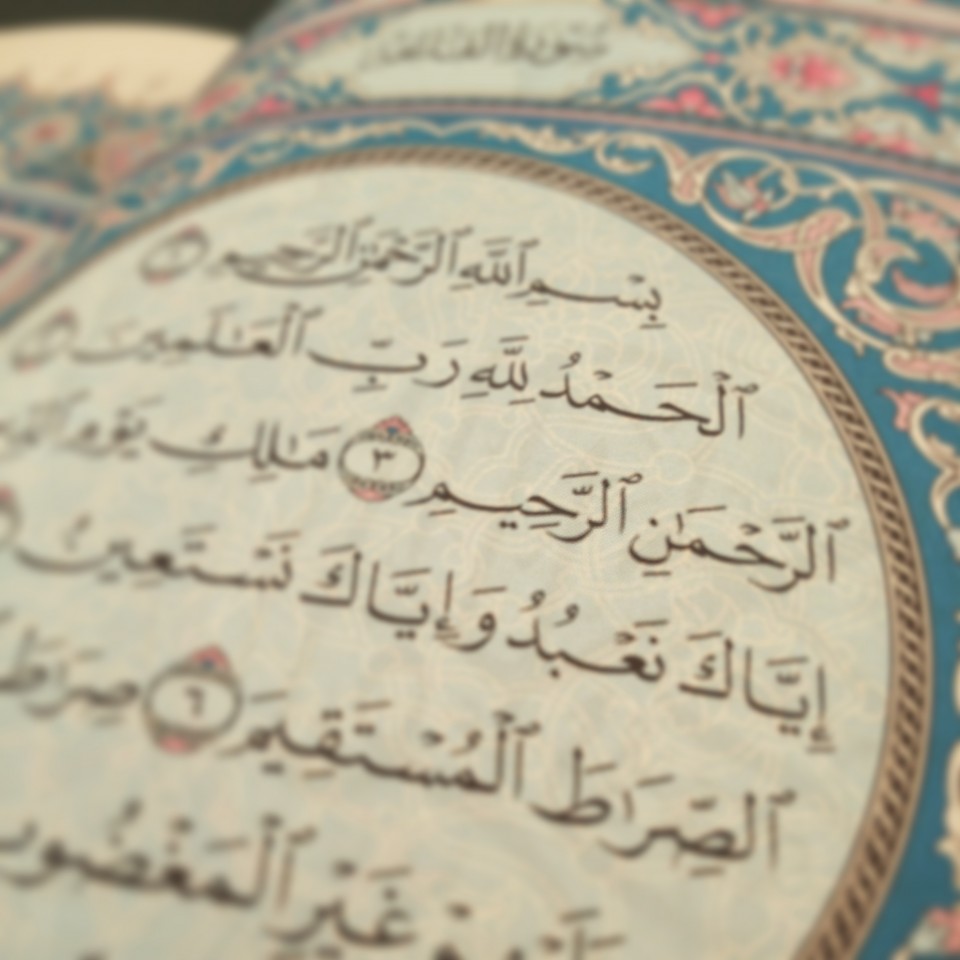 سورة الفاتحة
بِسْمِ ٱللَّهِ ٱلرَّحْمَـٰنِ ٱلرَّحِيمِ ١
ٱلْحَمْدُ لِلَّهِ رَبِّ ٱلْعَـٰلَمِينَ
ٱلرَّحْمَـٰنِ ٱلرَّحِيمِ ٣ مَـٰلِكِ يَوْمِ
إِيَّاكَ نَعْبُدُ وَإِيَّاكَ نَسْتَعِينُ
ٱلصِّرَٰطَ ٱلْمُسْتَقِيمَ ٦ صِرَٰطَ
غَيْرِ ٱلْمَغْضُوبِ